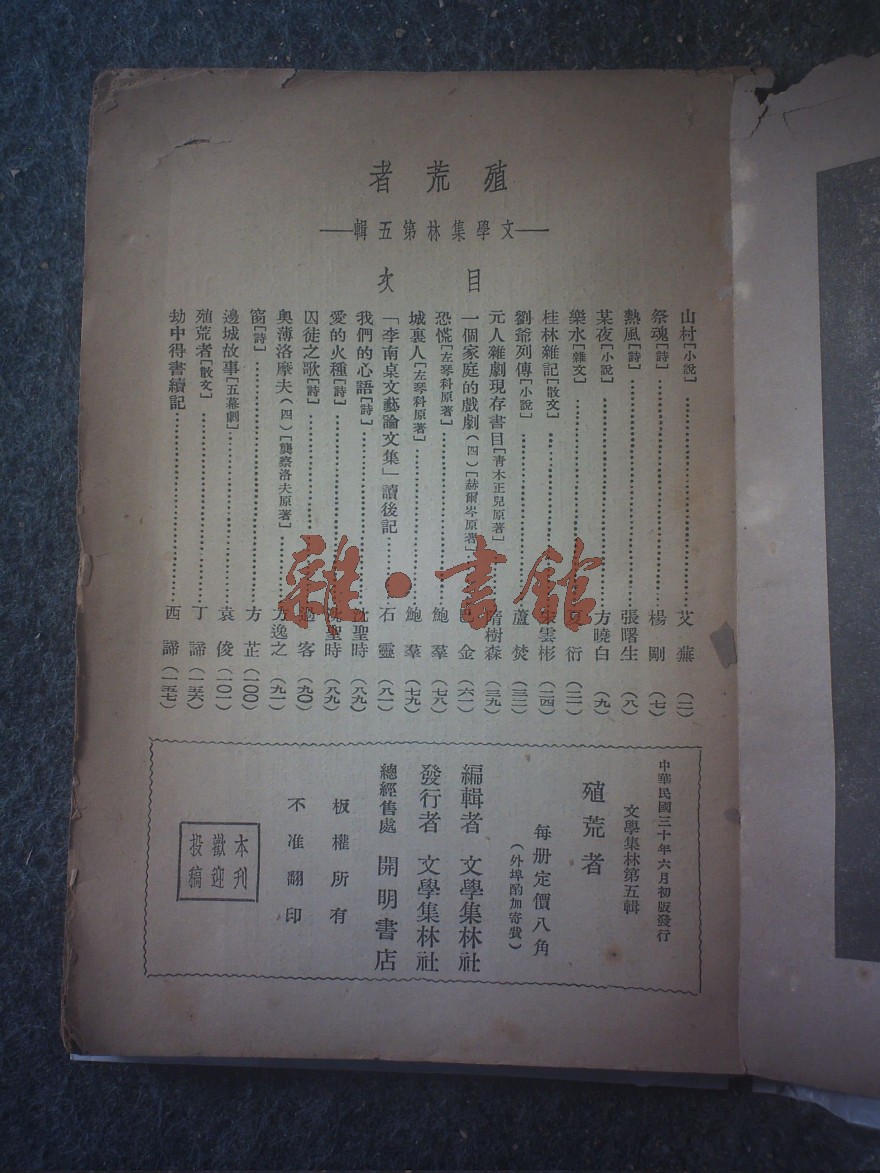 殖荒者
文學集林第五輯
目次
山村[小說]………艾蕪(一)
祭魂[詩]………楊剛(七)
熱風[詩]………張曙生(八)
某夜[小說]………方曉白(九)
樂水[雜文]………夏衍(二一)
桂林雜記[散文]………宋雲彬(二四)
劉爺列傳[小說]………蘆焚(三三)
元人雜劇現存書目[青木正兒原著]………隋樹森(三九)
一個家庭的戲劇(四)[赫爾岑原著]………巴金(六一)
恐慌[左琴科原著]………鮑羣(七八)
城裏人[左琴科原著]………鮑羣(七九)
「李南桌文藝論文集」讀後記………石靈(八一)
我們的心語[詩]………沈聖時(八九)
愛的火種[詩]………沈聖時(八九)
囚徒之歌[詩]………過客(九〇)
奧薄洛摩夫(四)[龔察洛夫原著]………方逸之(九一)
窗[詩]………方芷(一〇〇)
邊城故事[五幕劇]………袁俊(一〇一)
殖荒者[散文]………丁諦(一五六)
劫中得書續記………西諦(一五七)
中華民國三十年六月初版發行
文學集林第五輯
殖荒者
每册定價八角
(外埠酌加寄費)
編輯者 文學集林社
發行者 文學集林社
總經售處 開明書店
板權所有
不准翻印
本刊
歡迎
投稿
雜·書館